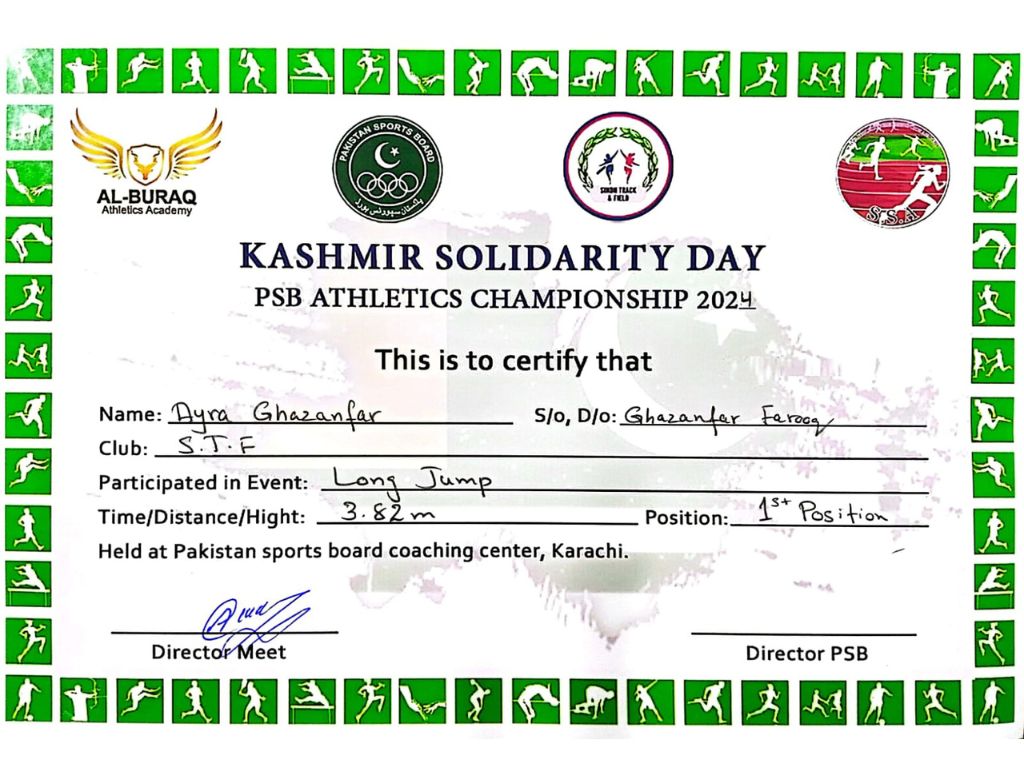 AL-BURAQ
Athletics Academy
PAKISTAN SPORTS BOARD
پاکستان سپورٹس بورڈ
SINDH TRACK
& FIELD
S.S.A
KASHMIR SOLIDARITY DAY
PSB ATHLETICS CHAMPIONSHIP 2024
This is to certify that
Name: Ayra Ghazanfar S/o, D/o: Ghazanfar Farooq
Club: S.T.F
Participated in Event: Long Jump
Time/Distance/Hight: 3.82m Position: 1st Position
Held at Pakistan sports board coaching center, Karachi.
Director Meet Director PSB